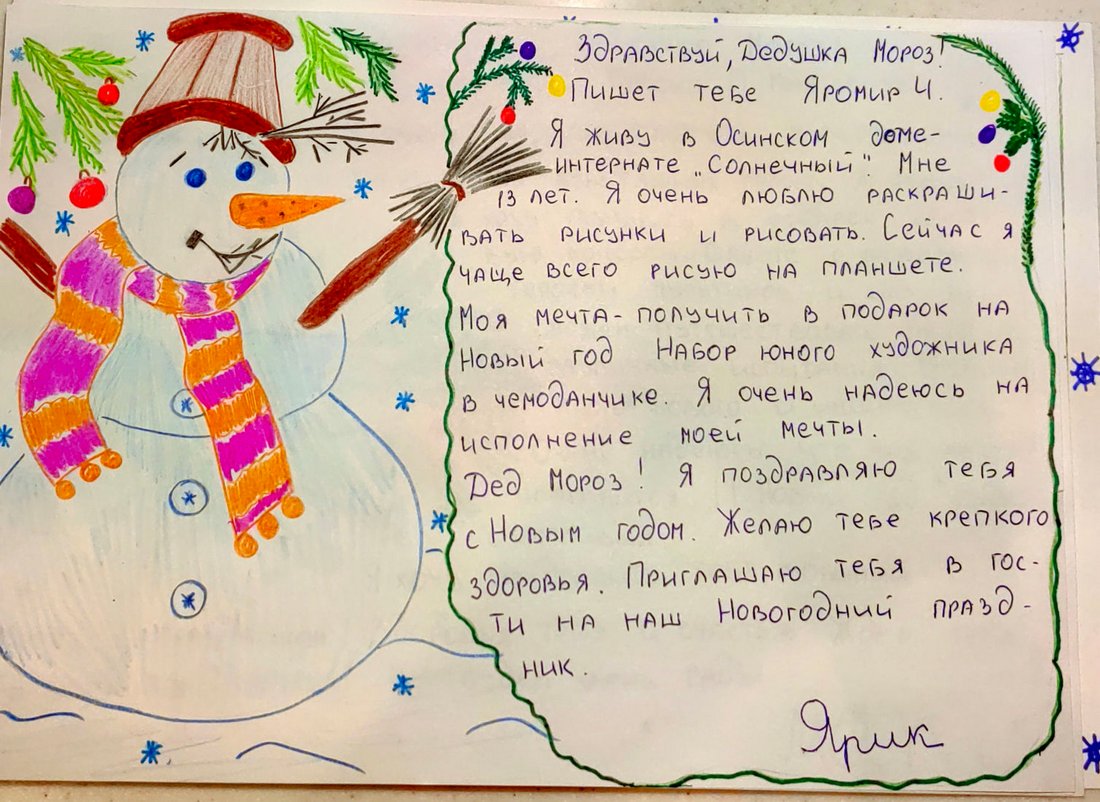 Здравствуй, Дедушка Мороз!
Пишет тебе Яромир Ч.
Я живу в Осинском доме-
интернате „Солнечный". Мне
13 лет. Я очень люблю раскраши-
вать рисунки и рисовать. Сейчас я
чаще всего рисую на планшете.
Моя мечта - получить в подарок на
Новый год Набор юного художника
в чемоданчике. Я очень надеюсь на
исполнение моей мечты.
Дед Мороз! Я поздравляю тебя
с Новым годом. Желаю тебе крепкого
здоровья. Приглашаю тебя в гос-
ти на наш Новогодний празд-
ник.
Ярик